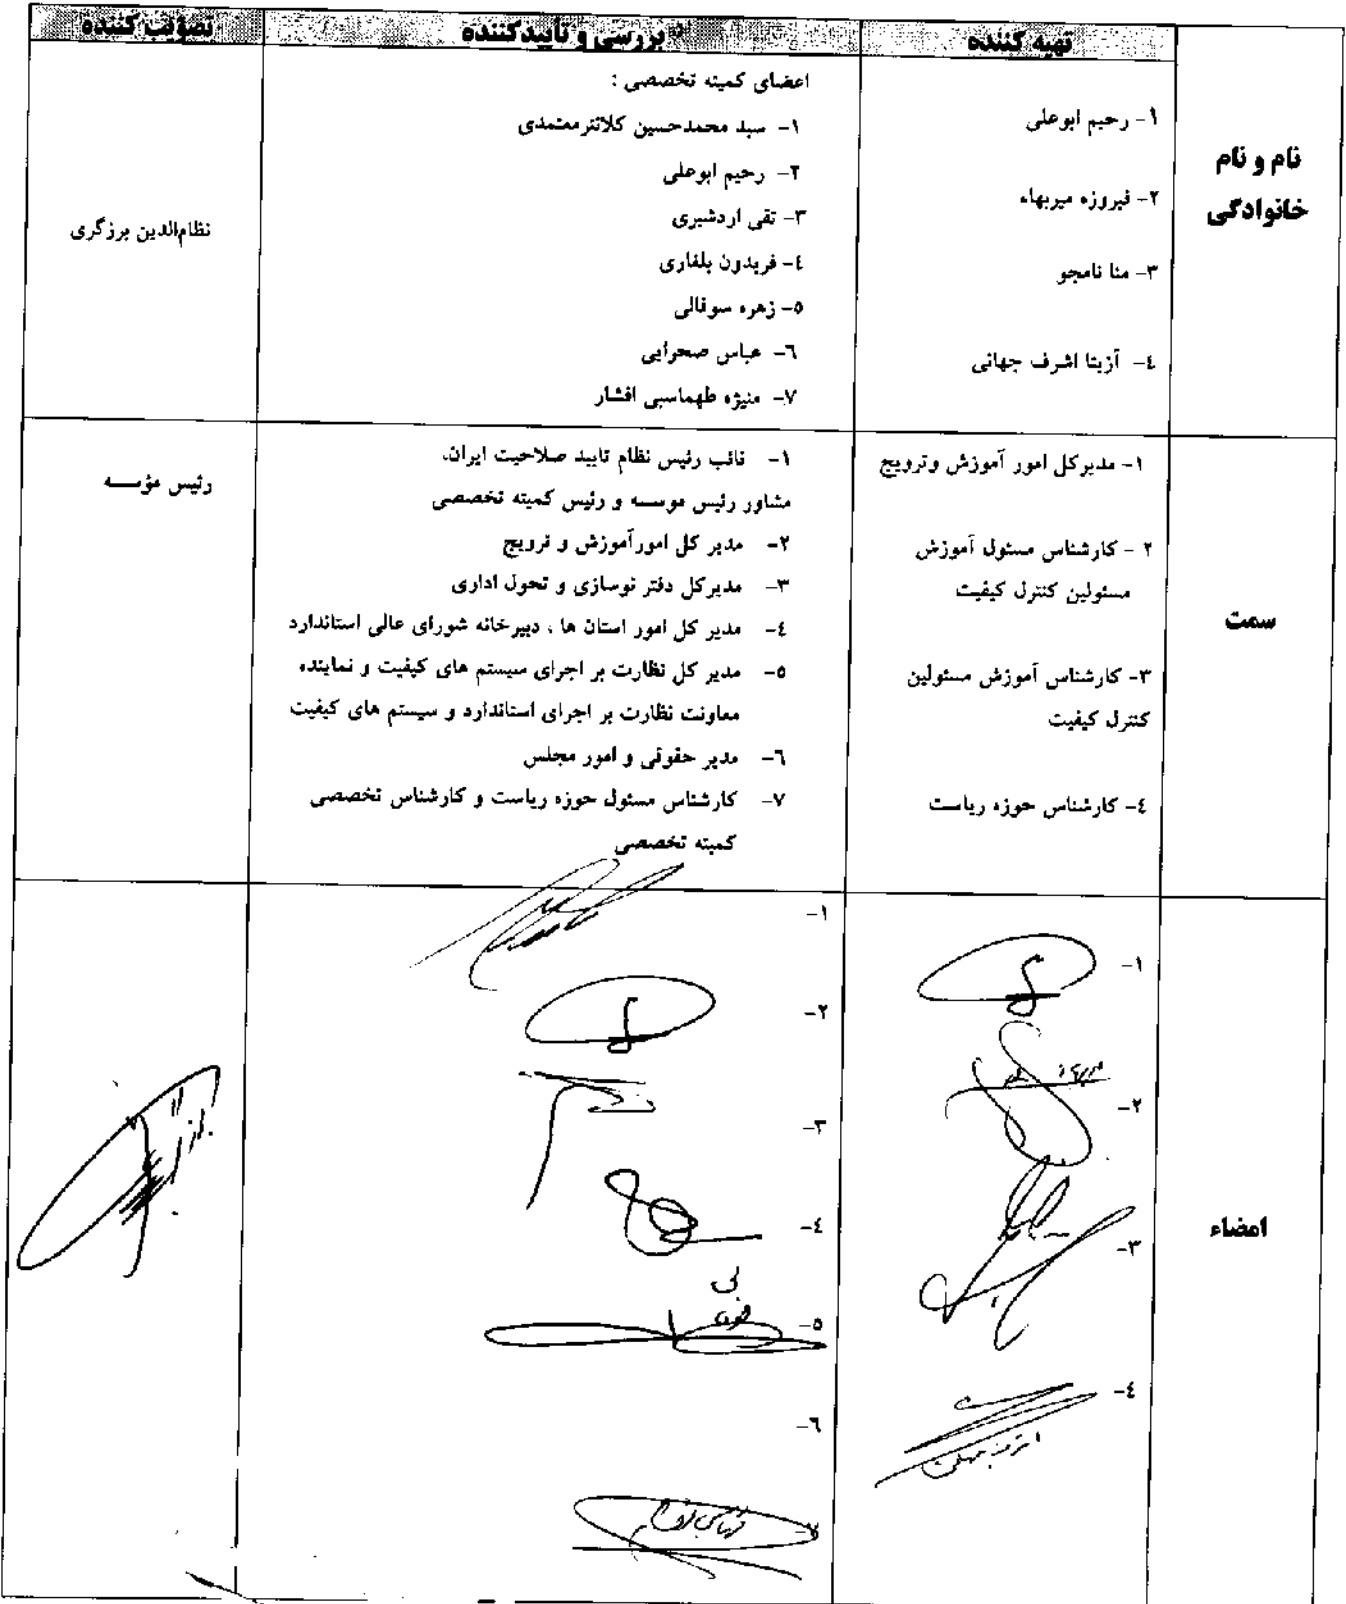 تهیه کننده
بررسی و تأییدکننده
تصویب کننده
نام و نام
خانوادگی
۱- رحیم ابوعلی
۲- فیروزه میربهاء
۳- منا نامجو
٤- آزیتا اشرف جهانی
اعضای کمیته تخصصی :
۱- سید محمدحسین کلانترمعتمدی
۲- رحیم ابوعلی
۳- تقی اردشیری
٤- فریدون بلغاری
٥- زهره سوفالی
٦- عباس صحرایی
۷- منیژه طهماسبی افشار
نظام‌الدین برزگری
سمت
۱- مدیرکل امور آموزش وترویج
۲ - کارشناس مسئول آموزش
مسئولین کنترل کیفیت
۳- کارشناس آموزش مسئولین
کنترل کیفیت
٤- کارشناس حوزه ریاست
۱- نائب رئیس نظام تایید صلاحیت ایران،
مشاور رئیس موسسه و رئیس کمیته تخصصی
۲- مدیر کل امورآموزش و ترویج
۳- مدیرکل دفتر نوسازی و تحول اداری
٤- مدیر کل امور استان ها ، دبیرخانه شورای عالی استاندارد
٥- مدیر کل نظارت بر اجرای سیستم های کیفیت و نماینده
معاونت نظارت بر اجرای استاندارد و سیستم های کیفیت
٦- مدیر حقوقی و امور مجلس
۷- کارشناس مسئول حوزه ریاست و کارشناس تخصصی
کمیته تخصصی
رئیس مؤسسه
امضاء
۱-
۲-
۳-
٤-
۱-
۲-
۳-
٤-
٥-
٦-
۷-